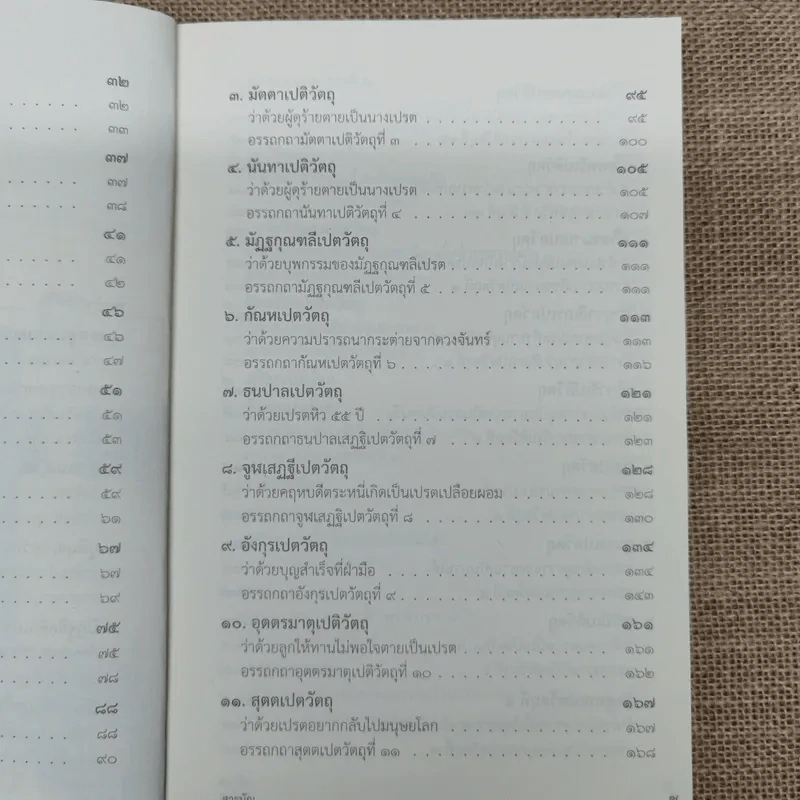 ๓๒
๓๒
๓๓
๓๗
๓๗
๓๘
๔๑
๔๑
๔๒
๔๖
๔๖
๔๗
๕๑
๕๑
๕๓
๕๙
๕๙
๖๑
๖๗
๖๗
๖๙
๗๕
๗๕
๗๘
๘๘
๘๘
๙๐
๓. มัตตาเปติวัตถุ ๙๕
ว่าด้วยผู้ดุร้ายตายเป็นนางเปรต . . . . . . . . . . . . . . ๙๕
อรรถกถามัตตาเปติวัตถุที่ ๓ . . . . . . . . . . . . . . . ๑๐๐
๔. นันทาเปติวัตถุ ๑๐๕
ว่าด้วยผู้ดุร้ายตายเป็นนางเปรต . . . . . . . . . . . . . . ๑๐๕
อรรถกถานันทาเปติวัตถุที่ ๔ . . . . . . . . . . . . . . . ๑๐๗
๕. มัฏฐกุณฑลีเปตวัตถุ ๑๑๑
ว่าด้วยบุพกรรมของมัฏฐกุณฑลิเปรต . . . . . . . . . . . . ๑๑๑
อรรถกถามัฏฐกุณฑลีเปตวัตถุที่ ๕ . . . . . . . . . . . . . ๑๑๑
๖. กัณหเปตวัตถุ ๑๑๓
ว่าด้วยความปรารถนากระต่ายจากดวงจันทร์ . . . . . . . . . ๑๑๓
อรรถกถากัณหเปตวัตถุที่ ๖ . . . . . . . . . . . . . . . . ๑๑๖
๗. ธนปาลเปตวัตถุ ๑๒๑
ว่าด้วยเปรตหิว ๕๕ ปี . . . . . . . . . . . . . . . . . . ๑๒๑
อรรถกถาธนปาลเสฏฐิเปตวัตถุที่ ๗ . . . . . . . . . . . . . ๑๒๓
๘. จูฬเสฏฐีเปตวัตถุ ๑๒๘
ว่าด้วยคฤหบดีตระหนี่เกิดเป็นเปรตเปลือยผอม . . . . . . . . ๑๒๘
อรรถกถาจูฬเสฏฐิเปตวัตถุที่ ๘ . . . . . . . . . . . . . . ๑๓๐
๙. อังกุรเปตวัตถุ ๑๓๔
ว่าด้วยบุญสำเร็จที่ฝ่ามือ . . . . . . . . . . . . . . . . . ๑๓๔
อรรถกถาอังกุรเปตวัตถุที่ ๙ . . . . . . . . . . . . . . . . ๑๔๓
๑๐. อุตตรมาตุเปติวัตถุ ๑๖๑
ว่าด้วยลูกให้ทานไม่พอใจตายเป็นเปรต . . . . . . . . . . . ๑๖๑
อรรถกถาอุตตรมาตุเปติวัตถุที่ ๑๐ . . . . . . . . . . . . . ๑๖๒
๑๑. สุตตเปตวัตถุ ๑๖๗
ว่าด้วยเปรตอยากกลับไปมนุษยโลก . . . . . . . . . . . . . ๑๖๗
อรรถกถาสุตตเปตวัตถุที่ ๑๑ . . . . . . . . . . . . . . . ๑๖๘
สารบัญ